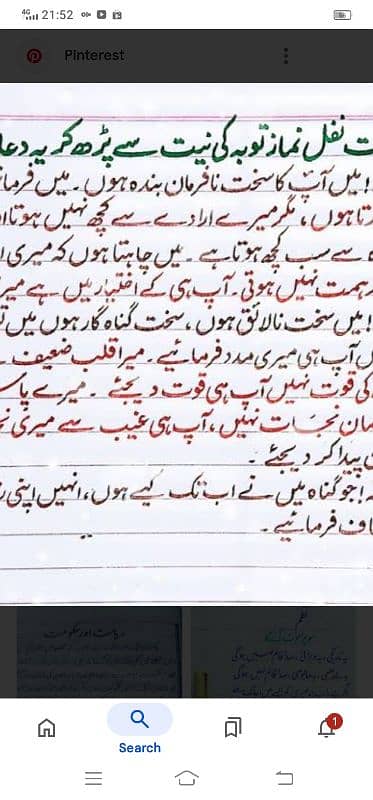 4G 21:52
Pinterest
ت نفل نماز توبہ کی نیت سے پڑھ کر یہ دعا
! میں آپ کا سخت نافرمان بندہ ہوں۔ میں فرما
تا ہوں، مگر میرے ارادے سے کچھ نہیں ہوتا ا
ہ سے سب کچھ ہوتا ہے۔ میں چاہتا ہوں کہ میری ا
ہمت نہیں ہوتی۔ آپ ہی کے اختیار میں ہے میر
! میں سخت نالائق ہوں، سخت گناہ گار ہوں میں
ں آپ ہی میری مدد فرمائیے۔ میرا قلب ضعیف۔
کی قوت نہیں آپ ہی قوت دیجئے۔ میرے پاس
مان نجات نہیں، آپ ہی غیب سے میری نج
پیدا کر دیجئے۔
! جو گناہ میں نے اب تک کیے ہوں، انہیں اپنی ر
اف فرمائیے۔
ریاست اور حکومت
نظم
1
Search